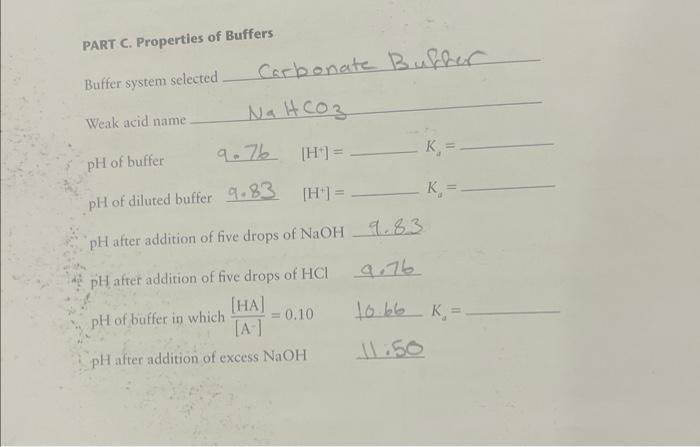 PART C. Properties of Buffers
Buffer system selected Carbonate Buffer
Weak acid name NaHCO3
pH of buffer 9.76 [H⁺] = Kₐ =
pH of diluted buffer 9.83 [H⁺] = Kₐ =
pH after addition of five drops of NaOH 9.83
pH after addition of five drops of HCl 9.76
pH of buffer in which [HA]/[A⁻] = 0.10 10.66 Kₐ =
pH after addition of excess NaOH 11.50